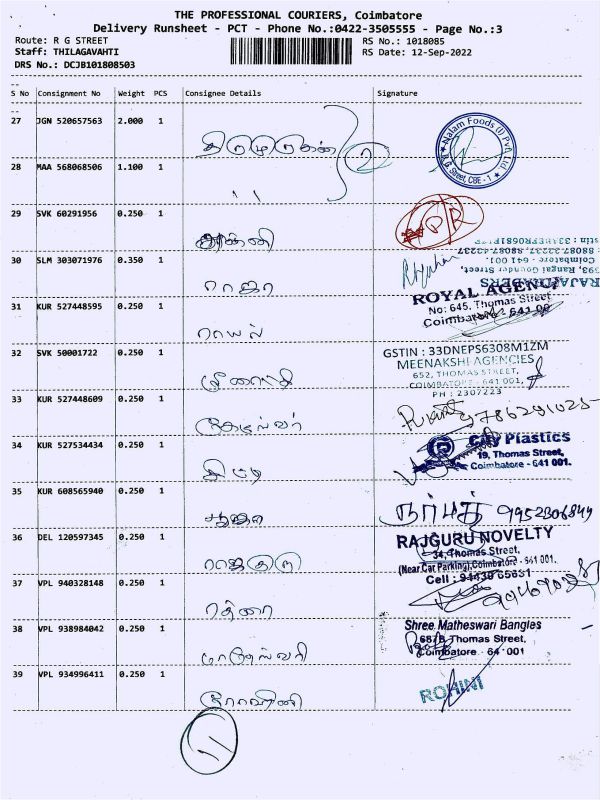 THE PROFESSIONAL COURIERS, Coimbatore
Delivery Runsheet - PCT - Phone No.:0422-3505555 - Page No.:3
Route: R G STREET RS No.: 1018085
Staff: THILAGAVAHTI RS Date: 12-Sep-2022
DRS No.: DCJB101808503
S No Consignment No Weight PCS Consignee Details Signature
27 JGN 520657563 2.000 1 திருமுருகன் 2 Nalam Foods (I) Pvt. Ltd. R.G. Street, CBE - 1
28 MAA 568068506 1.100 1 11
29 SVK 60291956 0.250 1
30 SLM 303071976 0.350 1 ராஜா
RAJA TRADERS
393, Rangai Gounder Street,
Coimbatore - 641 001.
31 KUR 527448595 0.250 1 ராயல்
ROYAL AGENCY
No: 645, Thomas Street
Coimbatore - 641 00
32 SVK 50001722 0.250 1
GSTIN : 33DNEPS6308M1ZM
MEENAKSHI AGENCIES
652, THOMAS STREET,
COIMBATORE - 641 001.
PH : 2307223
33 KUR 527448609 0.250 1 9786291025
34 KUR 527534434 0.250 1 சிட்டி
City Plastics
19, Thomas Street,
Coimbatore - 641 001.
35 KUR 608565940 0.250 1 9952306849
36 DEL 120597345 0.250 1 ராஜகுரு
RAJGURU NOVELTY
34, Thomas Street,
(Near Car Parking), Coimbatore - 641 001.
Cell : 94430 65631
37 VPL 940328148 0.250 1
38 VPL 938984042 0.250 1 மாதேஸ்வரி
Shree Matheswari Bangles
687B, Thomas Street,
Coimbatore - 641 001
39 VPL 934996411 0.250 1 ரோஹிணி ROHINI
11